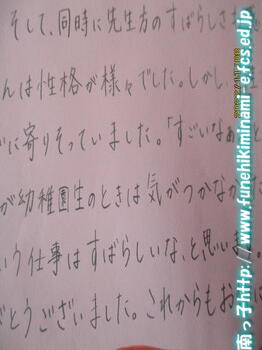 そして、同時に先生方のすばらしさ
んは性格が様々でした。しかし、
に寄りそっていました。「すごいなぁ」と
が幼稚園生のときは気がつかなかた
いう仕事はすばらしいな、と思いま
とうございました。これからもお
南っ子http://www.funehikiminami-e.fcs.ed.jp